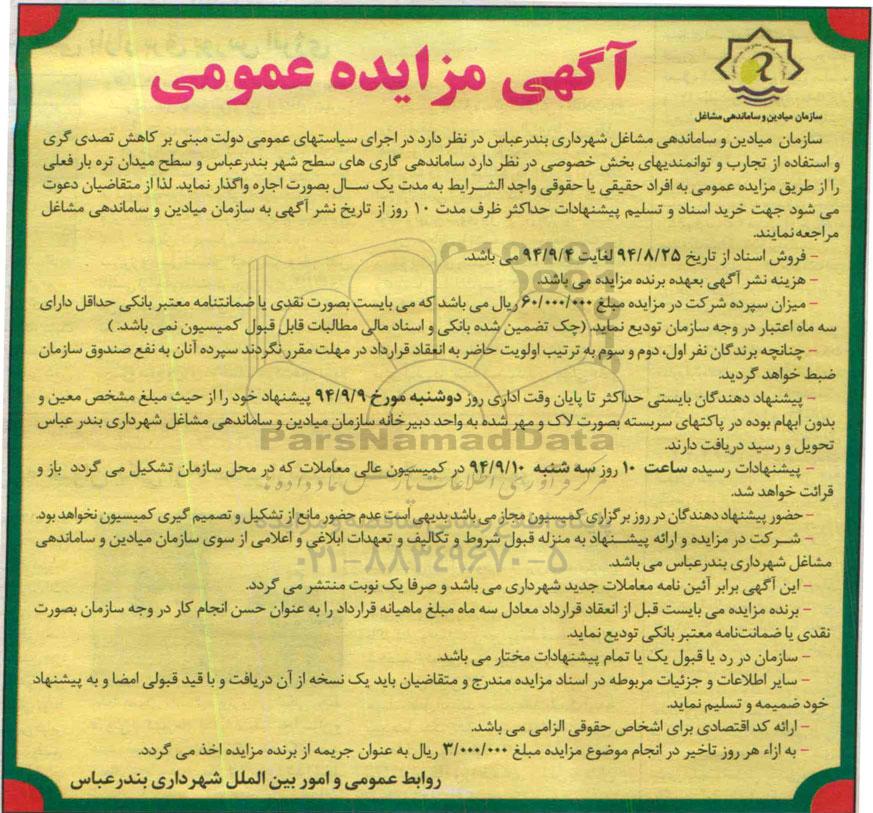 آگهی مزایده عمومی
سازمان میادین و ساماندهی مشاغل
سازمان میادین و ساماندهی مشاغل شهرداری بندرعباس در نظر دارد در اجرای سیاستهای عمومی دولت مبنی بر کاهش تصدی گری
و استفاده از تجارب و توانمندیهای بخش خصوصی در نظر دارد ساماندهی گاری های سطح شهر بندرعباس و سطح میدان تره بار فعلی
را از طریق مزایده عمومی به افراد حقیقی یا حقوقی واجد الشرایط به مدت یک سال بصورت اجاره واگذار نماید. لذا از متقاضیان دعوت
می شود جهت خرید اسناد و تسلیم پیشنهادات حداکثر ظرف مدت ۱۰ روز از تاریخ نشر آگهی به سازمان میادین و ساماندهی مشاغل
مراجعه نمایند.
- فروش اسناد از تاریخ ۹۴/۸/۲۵ لغایت ۹۴/۹/۴ می باشد.
- هزینه نشر آگهی بعهده برنده مزایده می باشد.
- میزان سپرده شرکت در مزایده مبلغ ۶۰/۰۰۰/۰۰۰ ریال می باشد که می بایست بصورت نقدی یا ضمانتنامه معتبر بانکی حداقل دارای
سه ماه اعتبار در وجه سازمان تودیع نماید. (چک تضمین شده بانکی و اسناد مالی مطالبات قابل قبول کمیسیون نمی باشد.)
- چنانچه برندگان نفر اول، دوم و سوم به ترتیب اولویت حاضر به انعقاد قرارداد در مهلت مقرر نگردند سپرده آنان به نفع صندوق سازمان
ضبط خواهد گردید.
- پیشنهاد دهندگان بایستی حداکثر تا پایان وقت اداری روز دوشنبه مورخ ۹۴/۹/۹ پیشنهاد خود را از حیث مبلغ مشخص معین و
بدون ابهام بوده در پاکتهای سربسته بصورت لاک و مهر شده به واحد دبیرخانه سازمان میادین و ساماندهی مشاغل شهرداری بندر عباس
تحویل و رسید دریافت دارند.
ParsNamadData
- پیشنهادات رسیده ساعت ۱۰ روز سه شنبه ۹۴/۹/۱۰ در کمیسیون عالی معاملات که در محل سازمان تشکیل می گردد باز و
قرائت خواهد شد.
- حضور پیشنهاد دهندگان در روز برگزاری کمیسیون مجاز می باشد بدیهی است عدم حضور مانع از تشکیل و تصمیم گیری کمیسیون نخواهد بود.
- شرکت در مزایده و ارائه پیشنهاد به منزله قبول شروط و تکالیف و تعهدات ابلاغی و اعلامی از سوی سازمان میادین و ساماندهی
مشاغل شهرداری بندرعباس می باشد.
۰۲۱-۸۸۳۴۹۶۷۰-۵
- این آگهی برابر آئین نامه معاملات جدید شهرداری می باشد و صرفا یک نوبت منتشر می گردد.
- برنده مزایده می بایست قبل از انعقاد قرارداد معادل سه ماه مبلغ ماهیانه قرارداد را به عنوان حسن انجام کار در وجه سازمان بصورت
نقدی یا ضمانت‌نامه معتبر بانکی تودیع نماید.
- سازمان در رد یا قبول یک یا تمام پیشنهادات مختار می باشد.
- سایر اطلاعات و جزئیات مربوطه در اسناد مزایده مندرج و متقاضیان باید یک نسخه از آن دریافت و با قید قبولی امضا و به پیشنهاد
خود ضمیمه و تسلیم نماید.
- ارائه کد اقتصادی برای اشخاص حقوقی الزامی می باشد.
- به ازاء هر روز تاخیر در انجام موضوع مزایده مبلغ ۳/۰۰۰/۰۰۰ ریال به عنوان جریمه از برنده مزایده اخذ می گردد.
روابط عمومی و امور بین الملل شهرداری بندرعباس